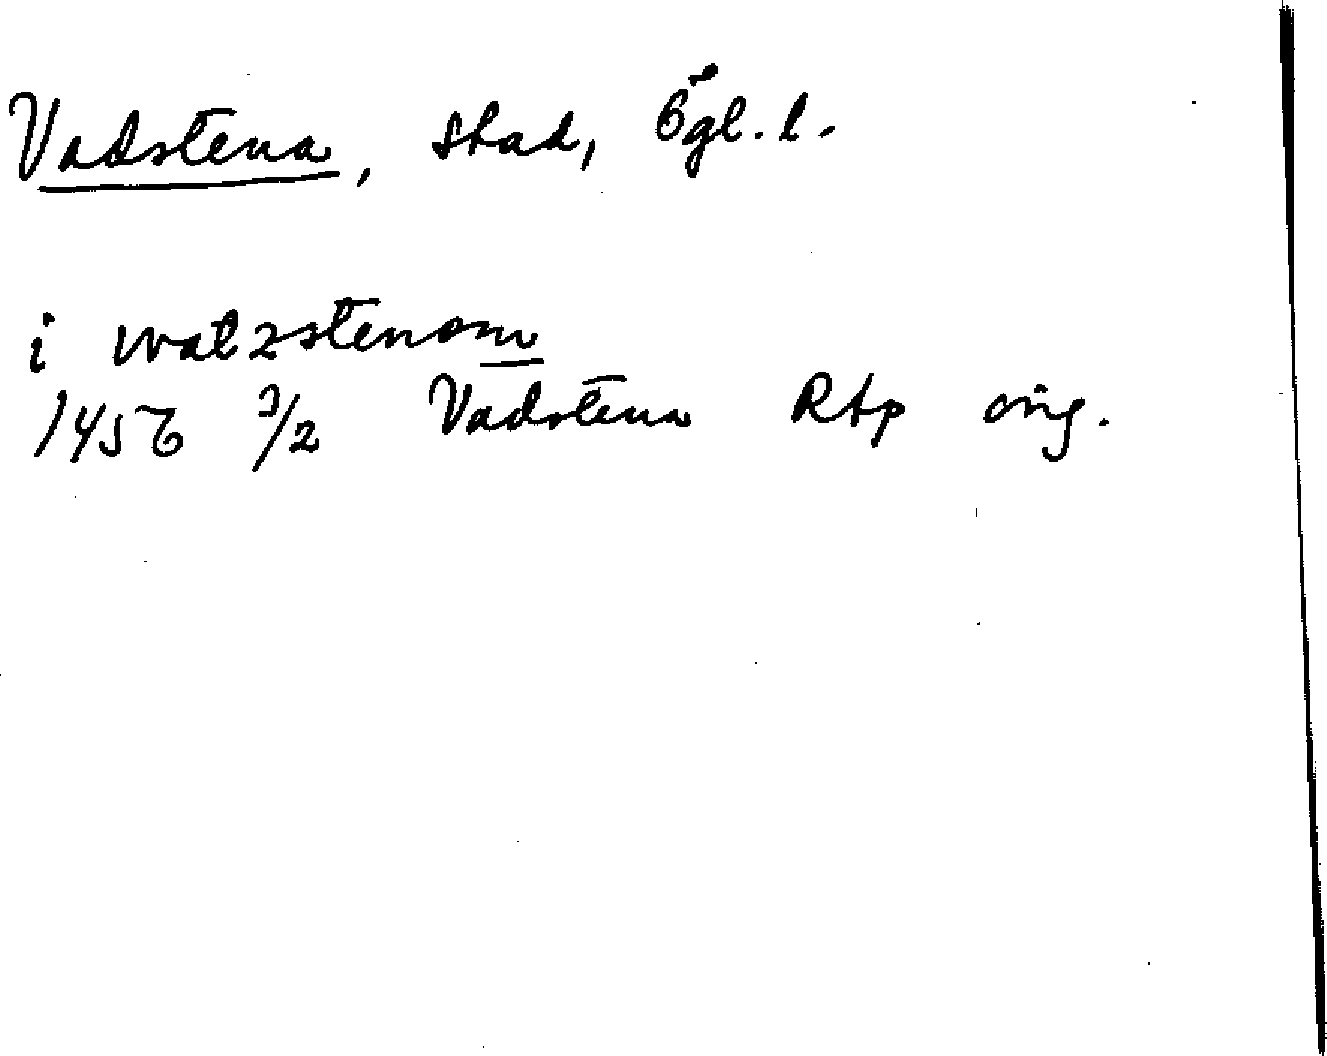 Vadstena, stad, Ögl. l.
i watzstenom
1456 3/2 Vadstena Rtp orig.